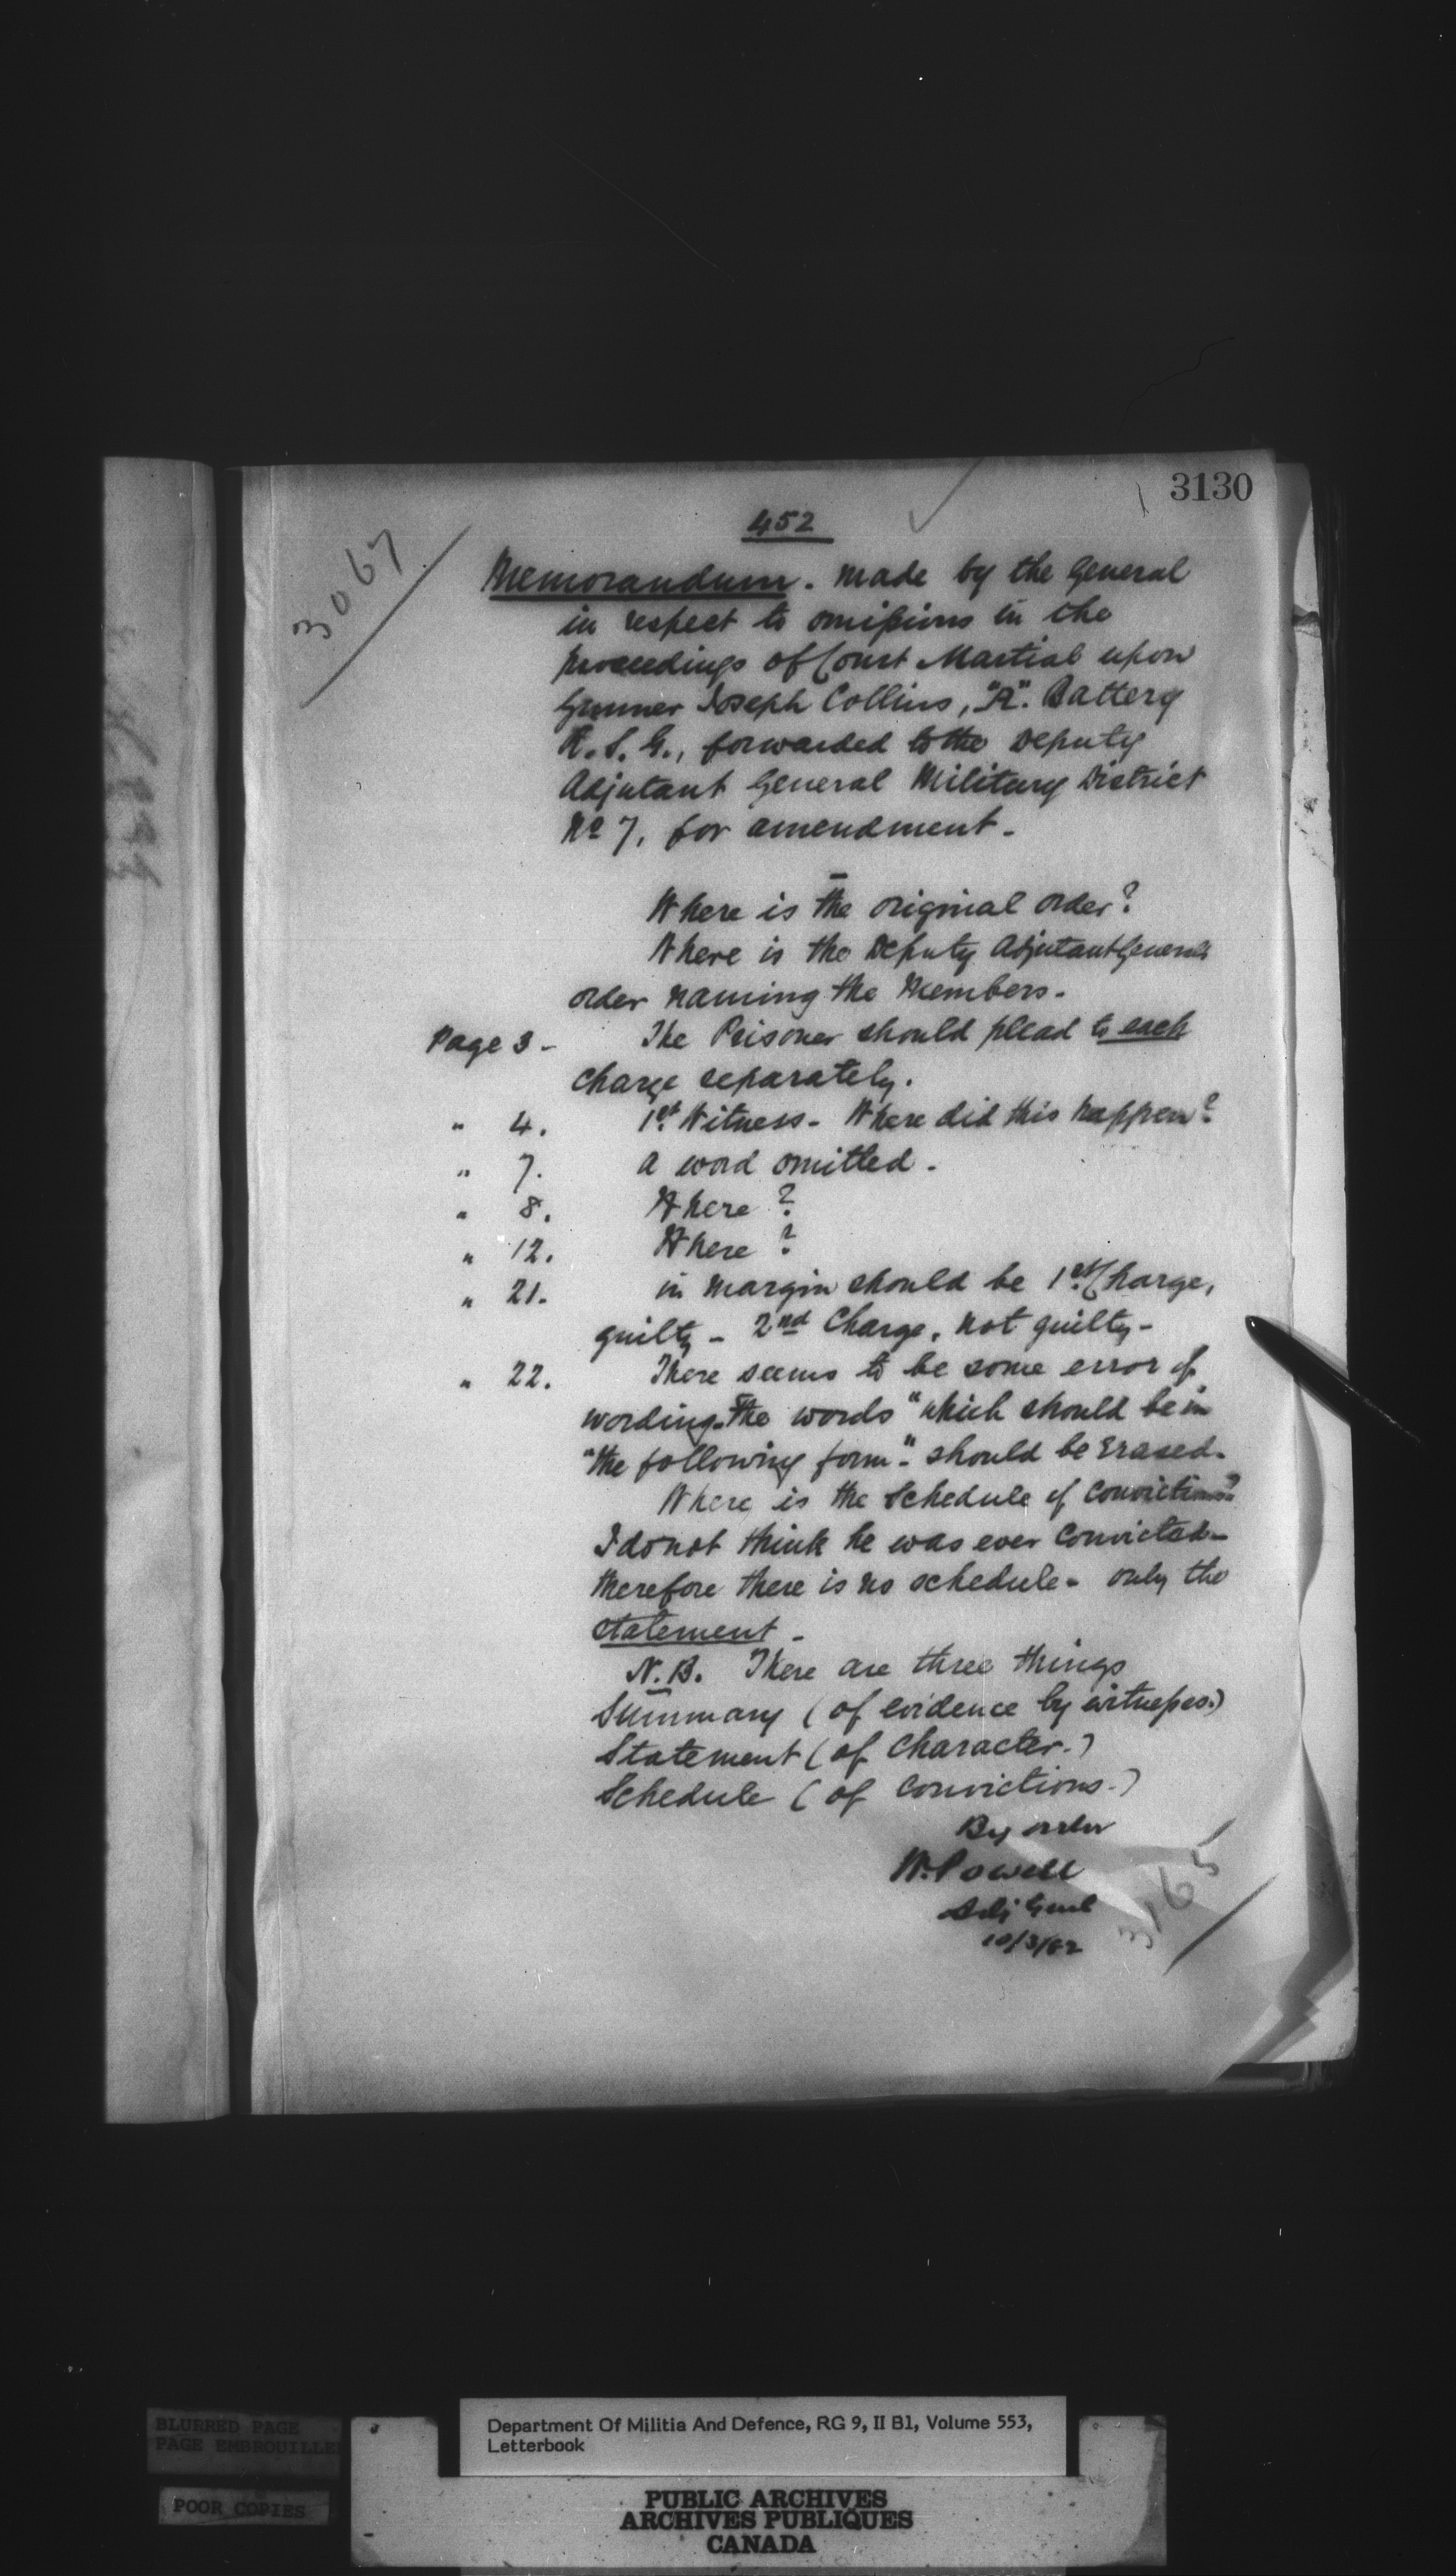 3130
452
3067
Memorandum. made by the General
in respect to omissions in the
proceedings of Court Martial upon
Gunner Joseph Collins, "A". Battery
R. S. G., forwarded to the Deputy
Adjutant General Military District
No 7, for amendment.
Where is the original order?
Where is the Deputy Adjutant Generals
order naming the Members.
Page 3 - The Prisoner should plead to each
charge separately.
" 4. 1st Witness - Where did this happen?
" 7. a word omitted.
" 8. Where?
" 12. Where?
" 21. in margin should be 1st Charge,
guilty - 2nd Charge, not guilty -
" 22. There seems to be some error of
wording. The words "which should be in
"the following form". should be Erased.
Where is the Schedule of Convictions?
I do not think he was ever Convicted -
therefore there is no schedule - only the
statement -
N.B. There are three things
Summary (of evidence by witnesses.)
Statement (of Character.)
Schedule (of Convictions.)
By order
W. Powell
Adj Genl
10/3/82
3165
BLURRED PAGE
PAGE EMBROUILLE
POOR COPIES
Department Of Militia And Defence, RG 9, II B1, Volume 553,
Letterbook
PUBLIC ARCHIVES
ARCHIVES PUBLIQUES
CANADA